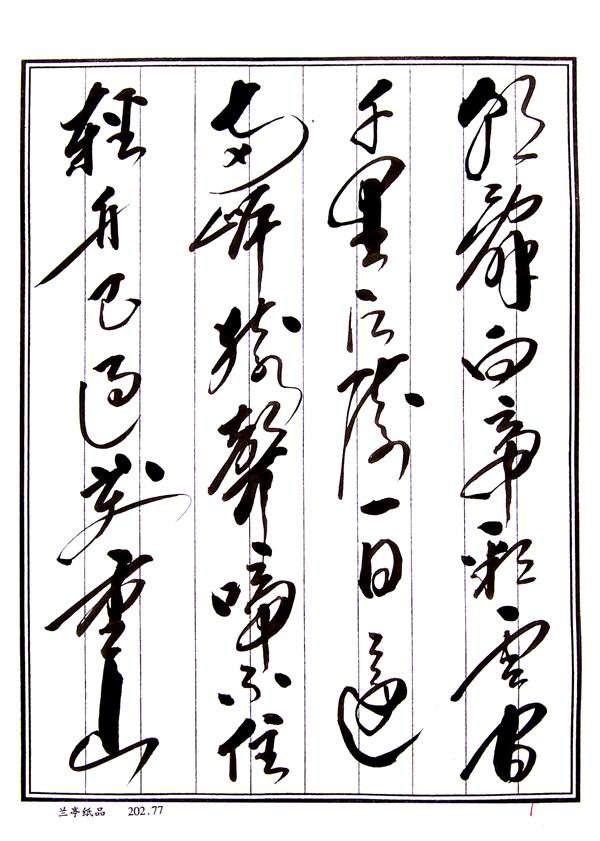 朝辭白帝彩雲間
千里江陵一日還
兩岸猿聲啼不住
輕舟已過萬重山
兰亭纸品 202.77